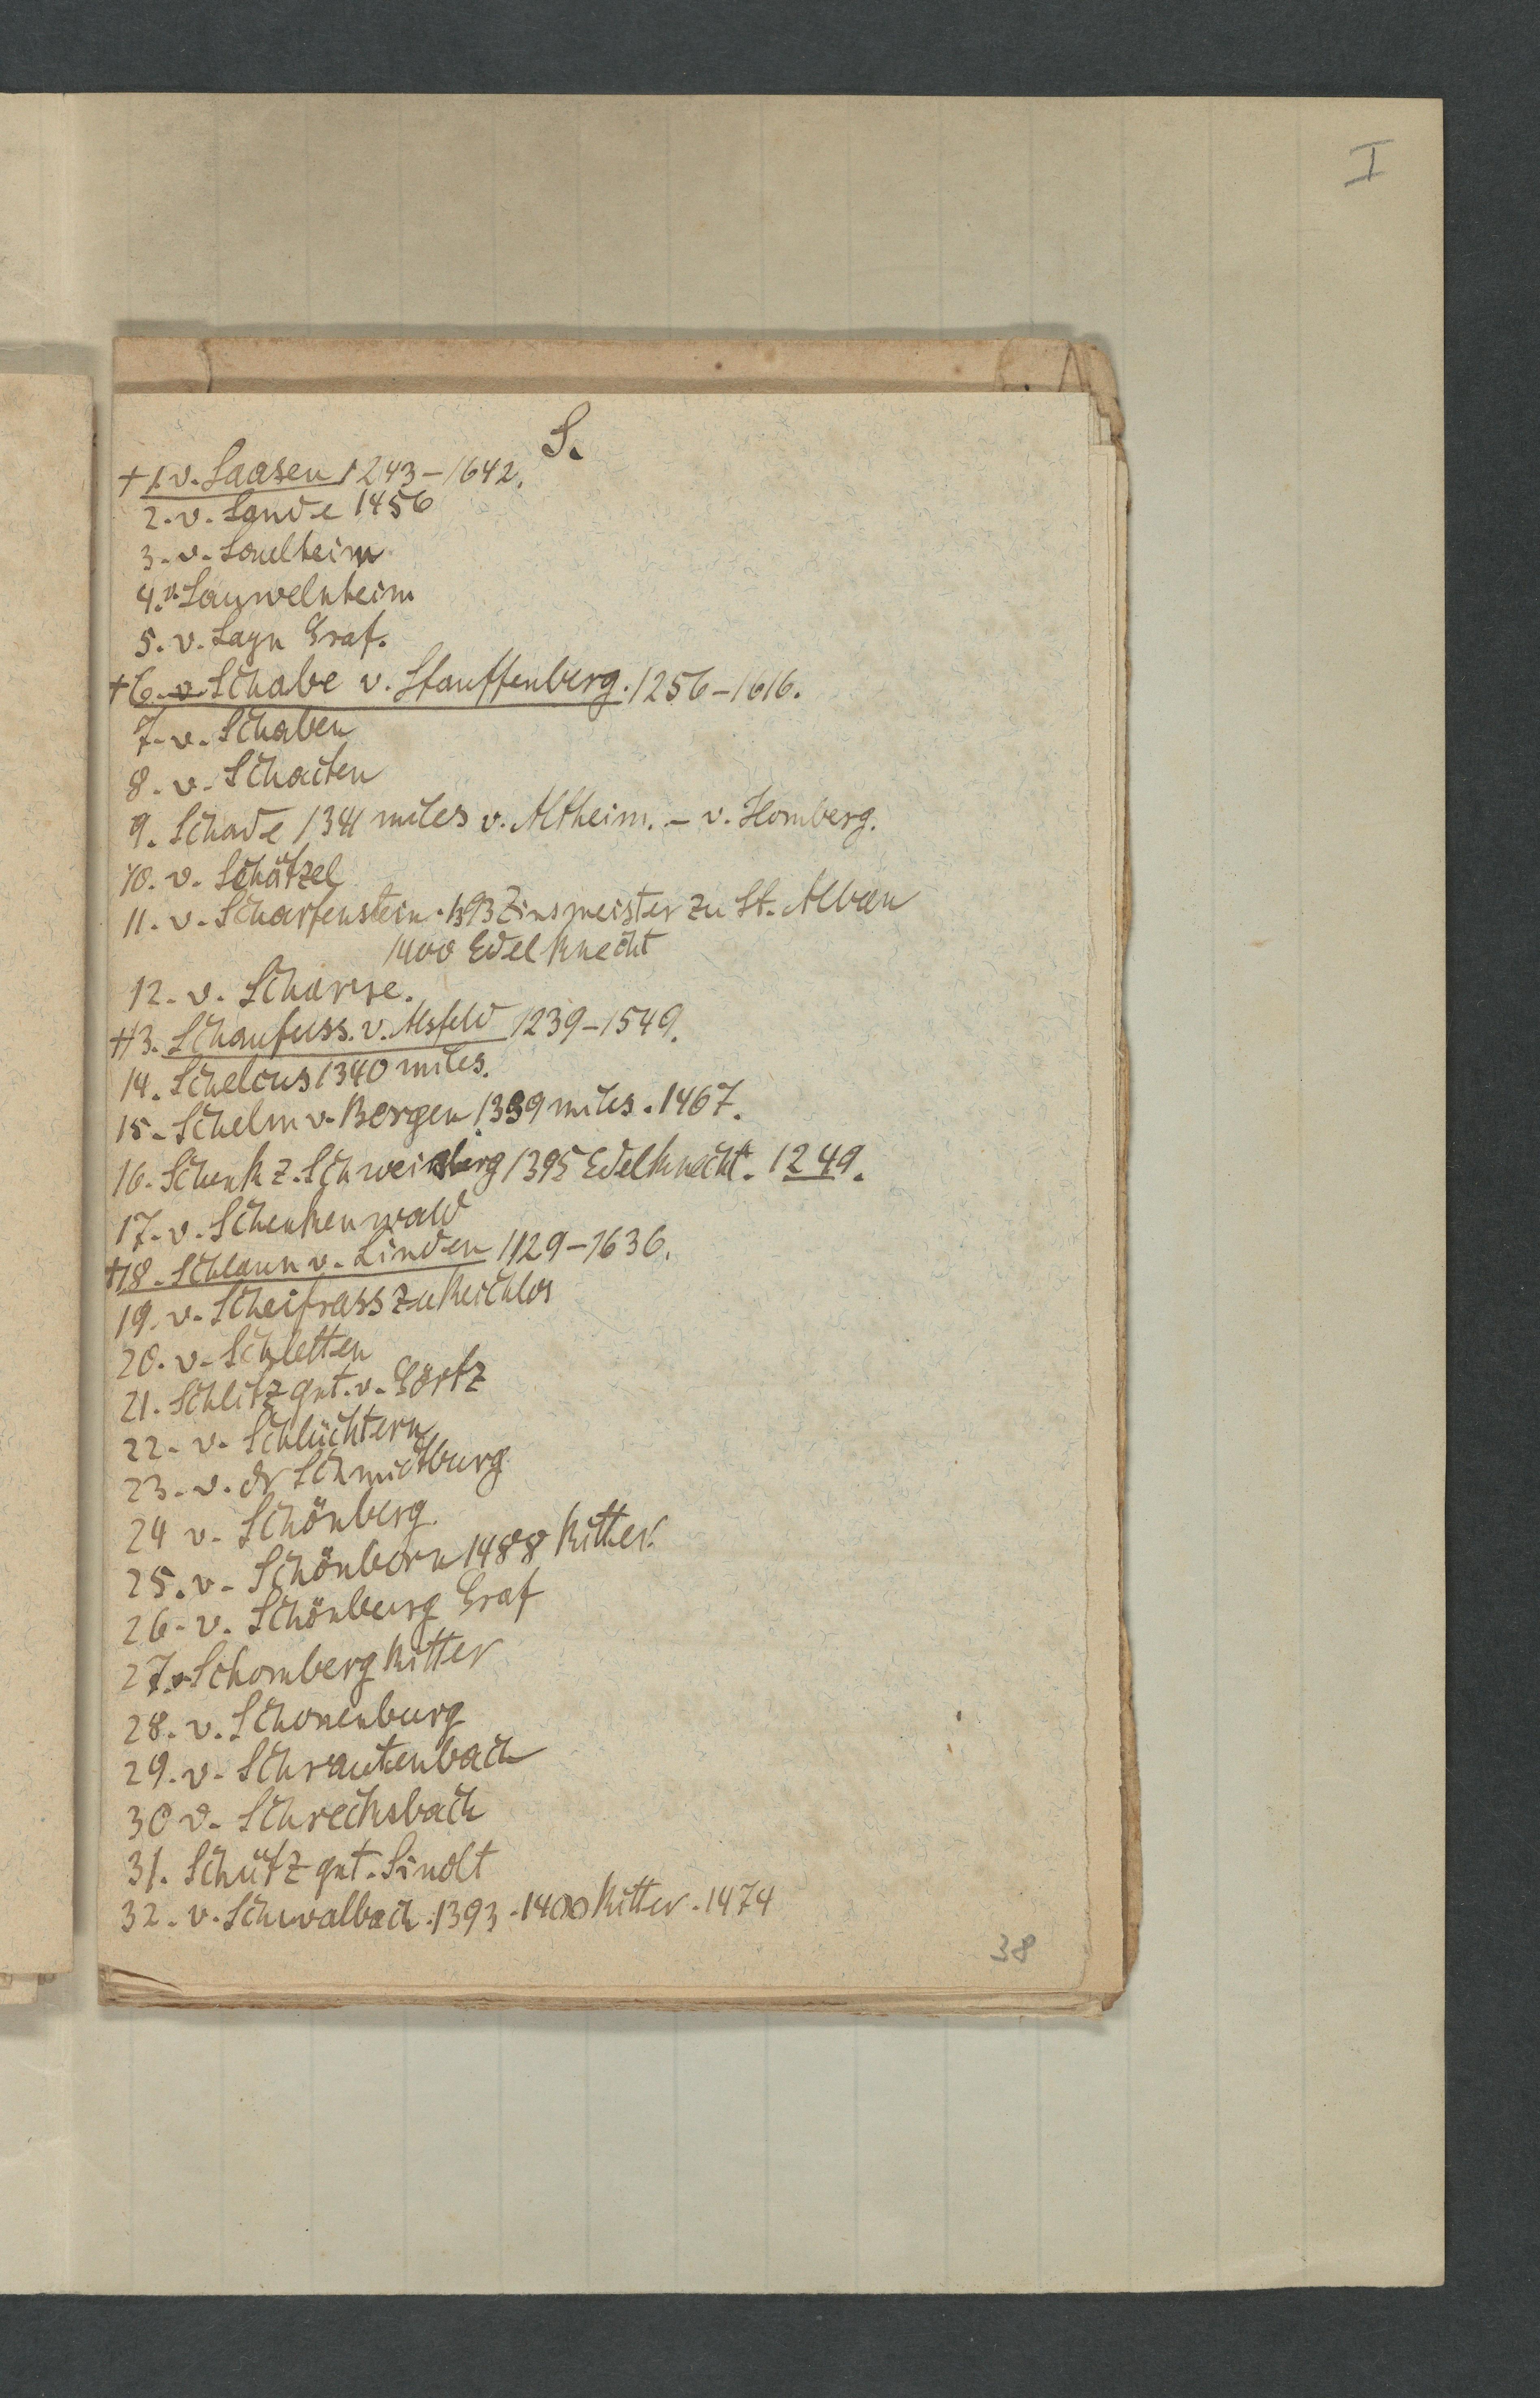 I
S.
+ 1. v. Saasen 1243-1642.
2. v. Sande 1456
3. v. Sauelheim
4. v. Sauwelnheim
5. v. Sayn Graf.
+ 6. v. Schabe v. Stauffenberg. 1256-1616.
7. v. Schaben
8. v. Schachten
9. Schade 1341 miles v. Altheim. - v. Homberg.
10. v. Schätzel
11. v. Scharfenstein. 1393 Zinsmeister zu St. Alban
1400 Edelknecht
12. v. Scharre.
+13. Schaufuss. v. Alsfeld 1239-1549.
14. Schelcus 1340 miles.
15. Schelm v. Bergen 1339 miles. 1467.
16. Schenk z. Schweinsberg 1395 Edelknecht. 1249.
17. v. Schenkenwald
+18. Schlaun v. Linden 1129-1636.
19. v. Scheifrass zu Reichlos
20. v. Schletten
21. Schlitz gnt. v. Görtz
22. v. Schlüchtern
23. v. dr Schmidtburg
24 v. Schönberg.
25. v. Schönborn 1488 Ritter.
26. v. Schönburg Graf
27. v. Schomberg Ritter
28. v. Schonenburg
29. v. Schrautenbach
30 v. Schrecksbach
31. Schütz gnt. Sindt
32. v. Schwalbach. 1393. 1400 Ritter. 1474
38